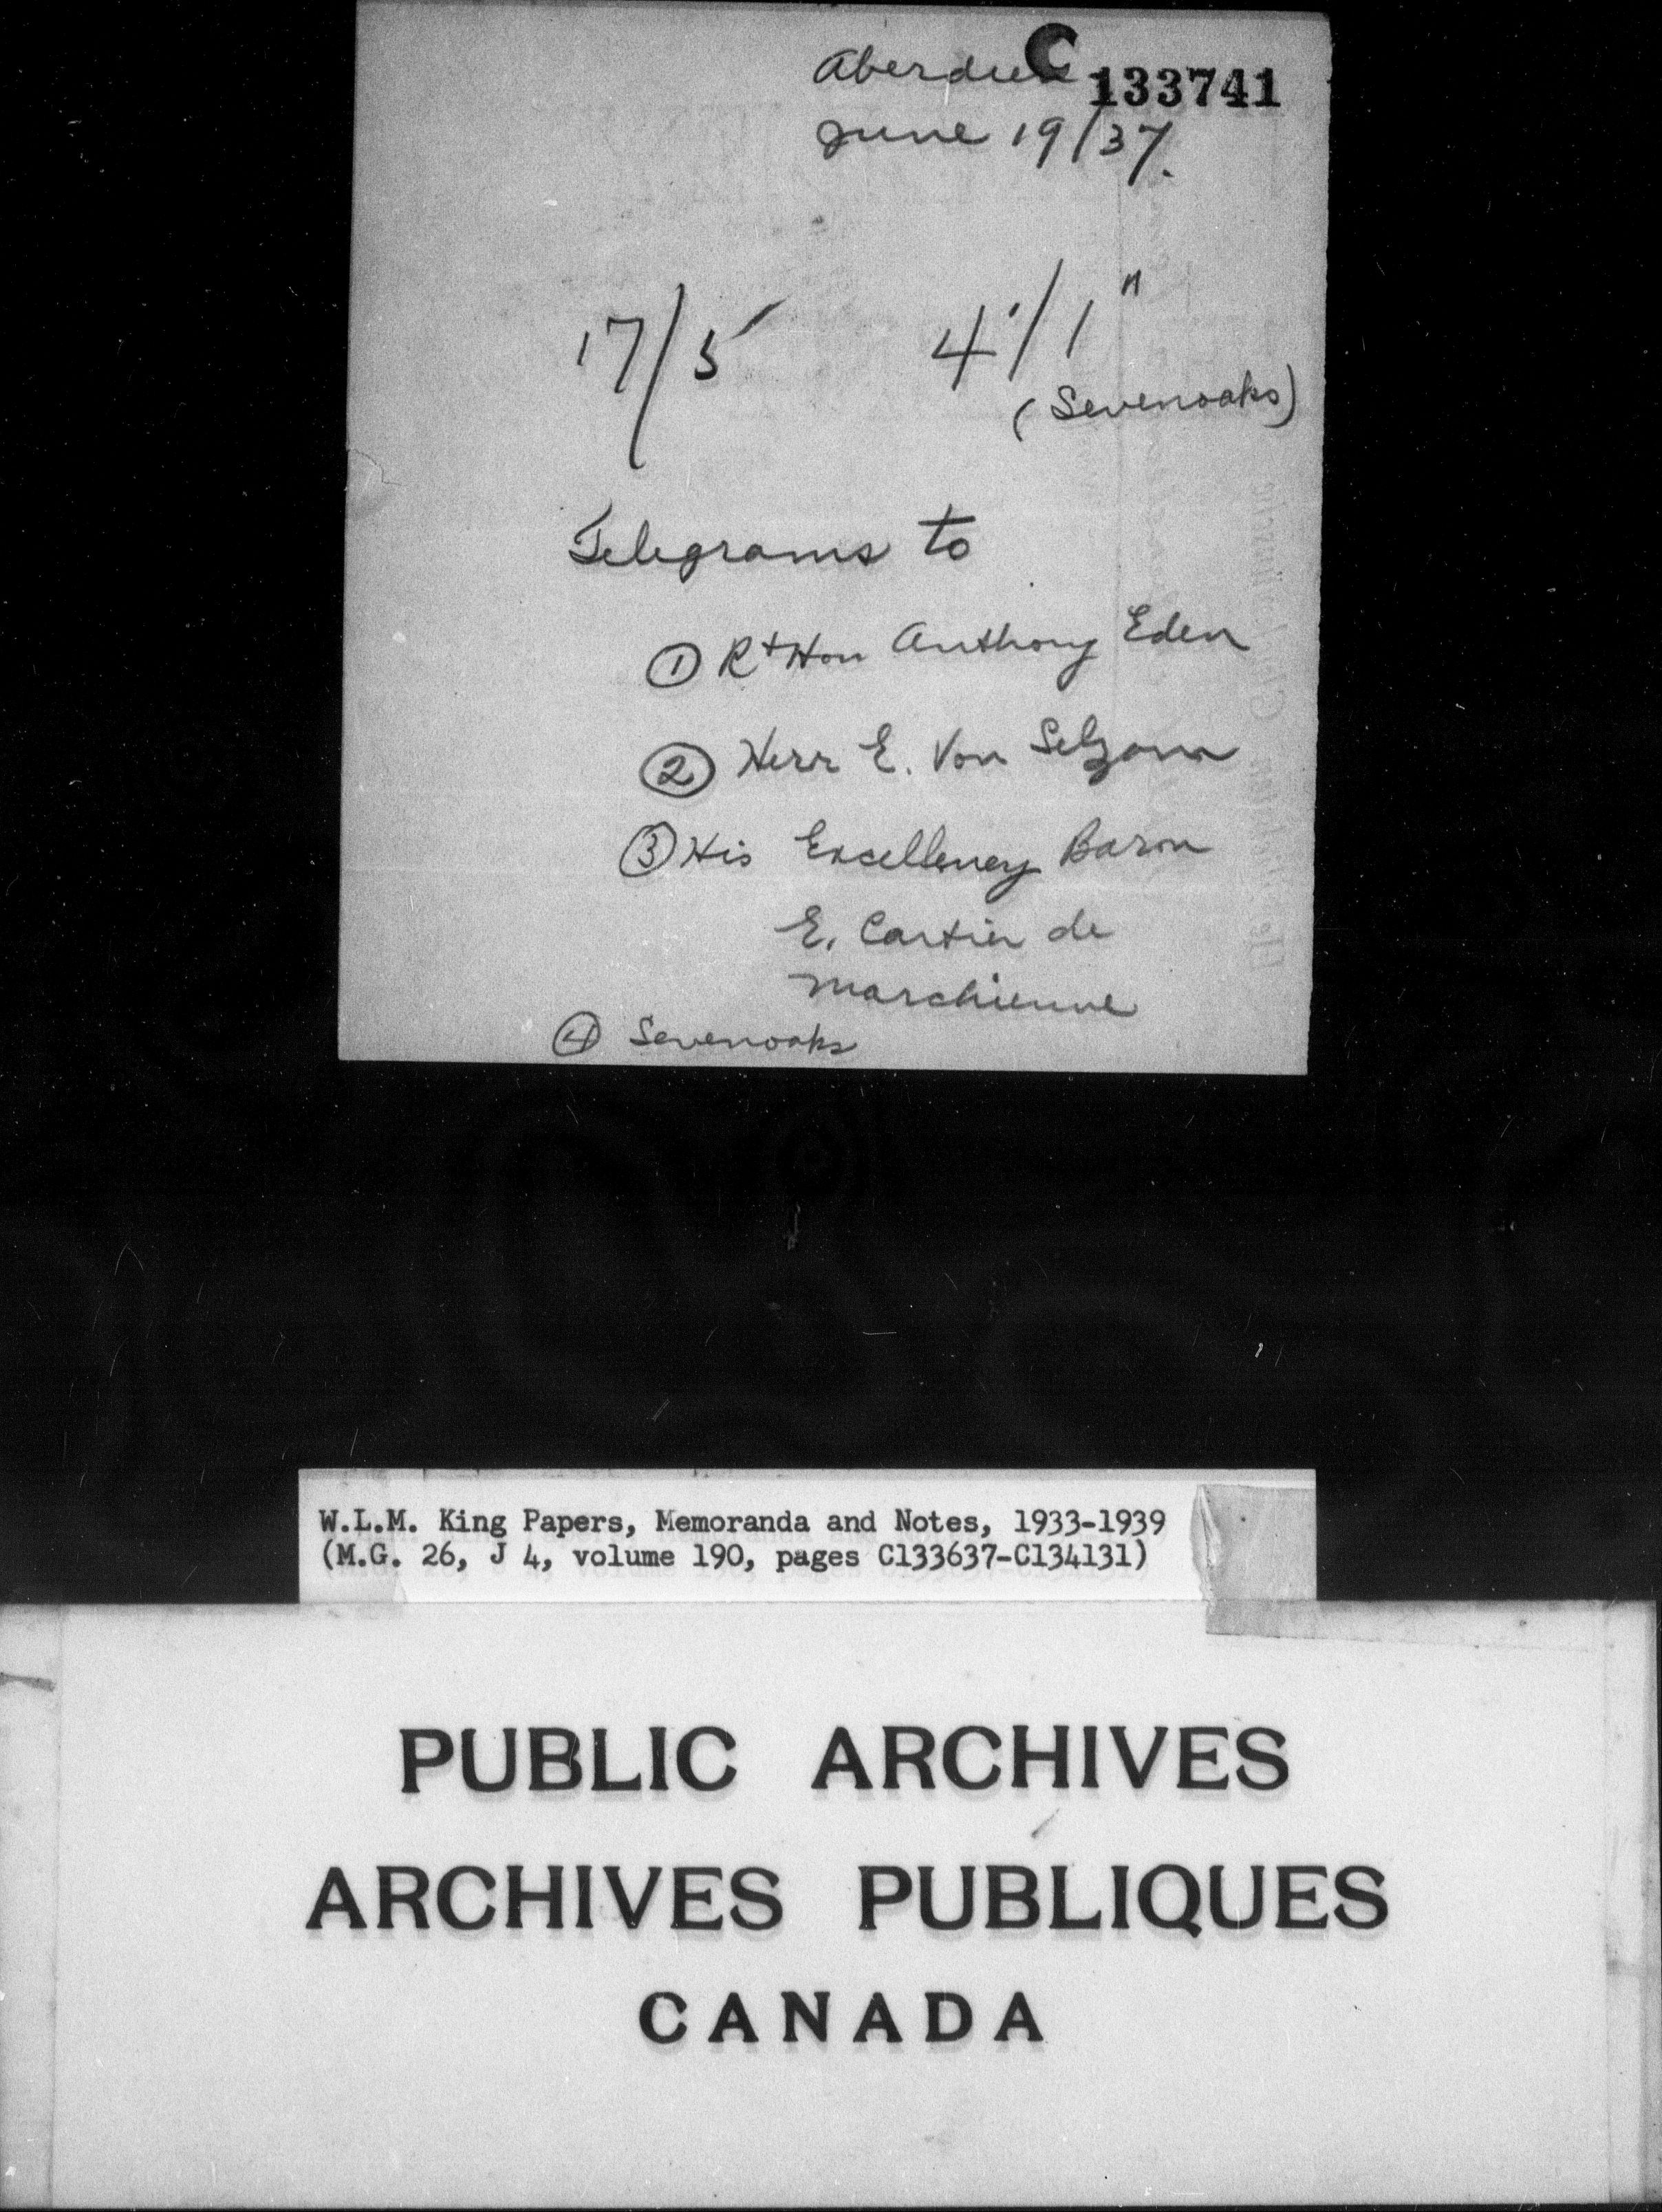 Aberdeen
C
133741
June 19/37.
17/5 4'/1"
(Sevenoaks)
Telegrams to
① Rt Hon Anthony Eden
② Herr E. Von Selzam
③ His Excellency Baron
E. Cartier de
Marchienne
④ Sevenoaks
W.L.M. King Papers, Memoranda and Notes, 1933-1939
(M.G. 26, J 4, volume 190, pages C133637-C134131)
PUBLIC ARCHIVES
ARCHIVES PUBLIQUES
CANADA